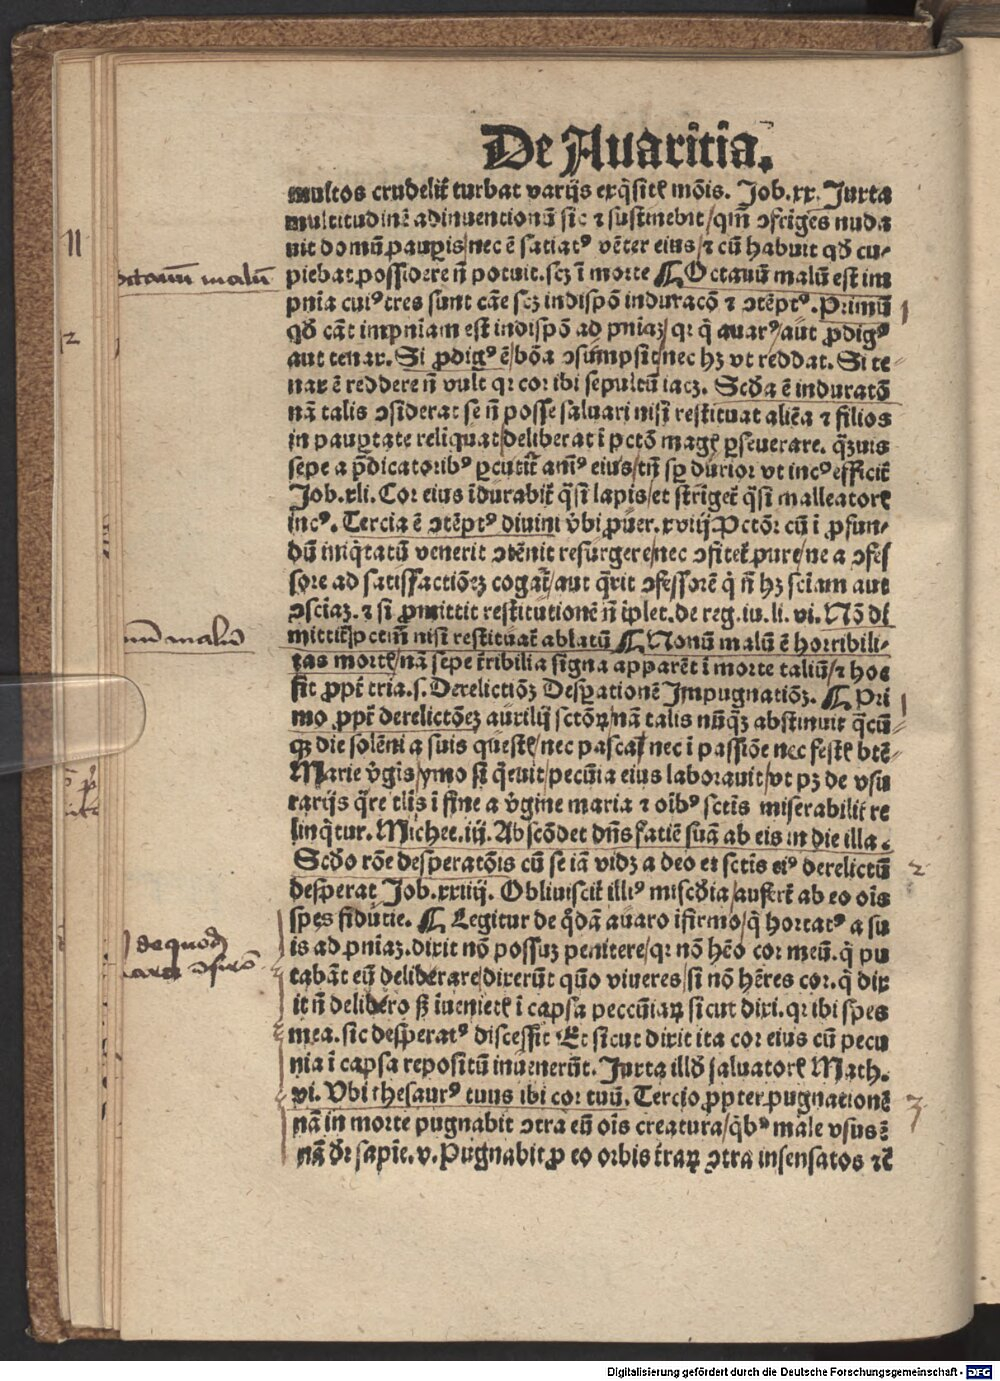 De Auaritia.
multos crudelit̃ turbat varijs exq̃site̜ mõis. Job.xx. Juxta
multitudinẽ adinuentionũ sic ⁊ sustinebit/qm̃ ↄfrĩges nuda
uit domũ paup̲is/nec ẽ satiatꝰ vẽter eius/⁊ cũ habuit qď cu-
piebat possidere ñ potuit.scꝫ ĩ morte ¶ Octauũ malũ est im
octauũ malũ
pñia cuiꝰ tres sunt cãe scꝫ indispõ induracõ ⁊ ↄtẽptꝰ. Primũ
qď cãt impñiam est indispõ ad pñiaꝫ/qꝛ q̃ auarꝰ/aut ꝓdigꝰ
aut tenax. Si ꝓdigꝰ ẽ/bõa ↄsũmpsit/nec hꝫ vt reddat. Si te-
nax ẽ reddere ñ vult qꝛ cor ibi sepultũ iacꝫ. Scďa ẽ induratõ
nã talis ↄsiderat se ñ posse saluari nisi restituat aliẽa ⁊ filios
in paup̲tate reliquat/deliberat ĩ pctõ mage̜ p̲seuerare. q̃ꝫuis
sepe a p̃dicatoribꝰ p̲cutit̃ amꝰ eius/tñ sp̲ durior vt incꝰ efficit̃
Job.xli. Cor eius ĩdurabit̃ q̃si lapis/et stringet̃ q̃si malleatore̜
incꝰ. Tercia ẽ ↄtẽptꝰ diuini ṽbi ꝓuer.xviij Pctõꝛ cũ ĩ ꝓfun-
dũ iniq̃tatũ venerit ↄtẽnit resurgere/nec ↄfitet̃ pure/ne a ↄfes
sore ad satisfactiõeꝫ cogat̃/aut q̃rit ↄfessorẽ q̃ ñ hꝫ sciam aut
ↄsciaꝫ. ⁊ si ꝓmittit restitutionẽ ñ ĩplet. de reg.iu.li.vi. Nõ di
mittit̃ pctũ nisi restituat̃ ablatũ ¶ Nonũ malũ ẽ horribili-
nũ malũ
tas morte̜/nã sepe t̃ribilia signa apparẽt ĩ morte taliũ/⁊ hoc
fit ꝓpt̃ tria.s. Derelictiõꝫ Desp̲ationẽ Jmpugnatiõꝫ. ¶ Pri
mo ꝓpt̃ derelictõeꝫ auxilij sctõꝝ/nã talis nũq̃ꝫ abstinuit q̃cũ-
qꝫ die solẽni a suis queste̜/nec pascal̃ nec ĩ passiõe nec feste̜ btẽ-
Marie ṽgis/ymo si q̃euit/pecũia eius laborauit/vt pꝫ de vsu
rarijs q̃re tlis ĩ fine a ṽgine maria ⁊ oĩbꝰ sctĩs miserabilit̃ re
linq̃tur. Michee.iij. Abscõdet dñs faciẽ suã ab eis in die illa.
Scďo rõe desperatõis cũ se iã vidꝫ a deo et sctĩs eiꝰ derelictũ
desperat Job.xxiiij. Obliuiscit̃ illiꝰ misc̃dia/aufert̃ ab eo oĩs
spes fidutie. ¶ Legitur de q̃dã auaro ĩfirmo/q̃ hortatꝰ a su
de quodã
auaro ↄfirmo
is ad pñiaꝫ.dixit nõ possuꝫ penitere/qꝛ nõ hẽo cor meũ.q̃ pu
tabãt eũ deliberare/dixerũt quõ viueres/si nõ hẽres cor.q̃ dix
it ñ delibero sꝫ ĩueniete̜ ĩ capsa peccũiaꝝ sicut dixi.qꝛ ibi spes
mea.sic desperatꝰ discessit Et sicut dixit ita cor eius cũ pecu
nia ĩ capsa repositũ inuenerũt. Juxta illď saluatore̜ Math.
vi. Vbi thesaurꝰ tuus ibi cor tuũ. Tercio ꝓpter pugnationẽ
nã in morte pugnabit ↄtra eũ oĩs creatura/q̃bꝰ male vsus ẽ
nã dꝛ sapĩe.v. Pugnabit ꝓ eo orbis t̃raꝝ ↄtra insensatos ⁊c̃
Digitalisierung gefördert durch die Deutsche Forschungsgemeinschaft - DFG